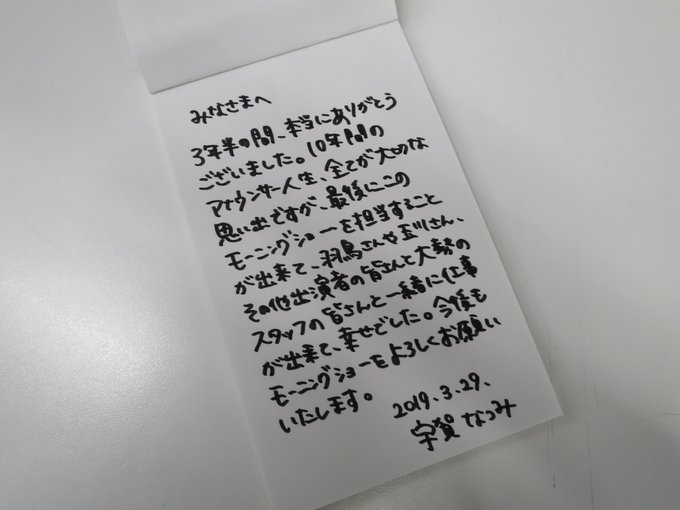 みなさまへ
3年半の間、本当にありがとう
ございました。10年間の
アナウンサー人生、全てが大切な
思い出ですが、最後にこの
モーニングショーを担当すること
が出来て、羽鳥さんや玉川さん、
その他出演者の皆さんと大勢の
スタッフの皆さんと一緒に仕事
が出来て、幸せでした。今後も
モーニングショーをよろしくお願い
いたします。
2019.3.29.
宇賀なつみ